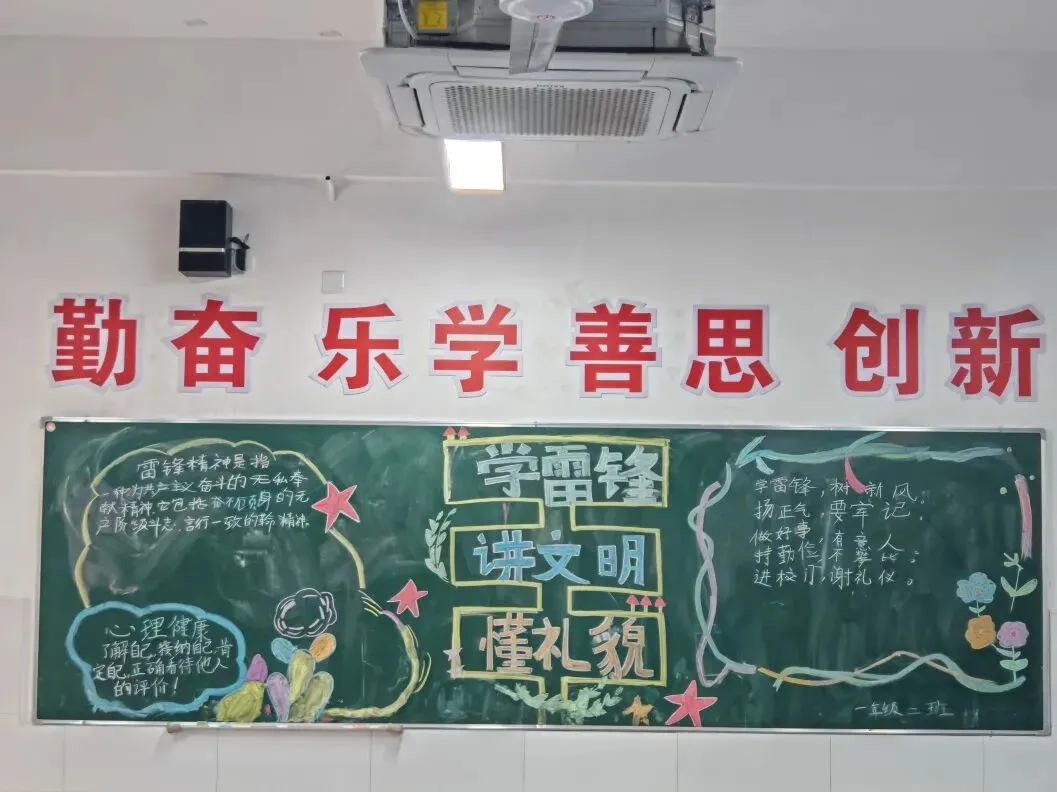 勤奋 乐学 善思 创新
雷锋精神是指
一种为共产主义奋斗的无私奉
献精神,它包括奋不顾身的无
产阶级斗志,言行一致的
精神
心理健康
了解自己,接纳自己,肯
定自己,正确看待他人
的评价!
学雷锋
讲文明
懂礼貌
学雷锋,树新风;
扬正气,要牢记;
做好事,有意人
持勤俭,不攀比;
进校门,谢礼仪。
一年级二班